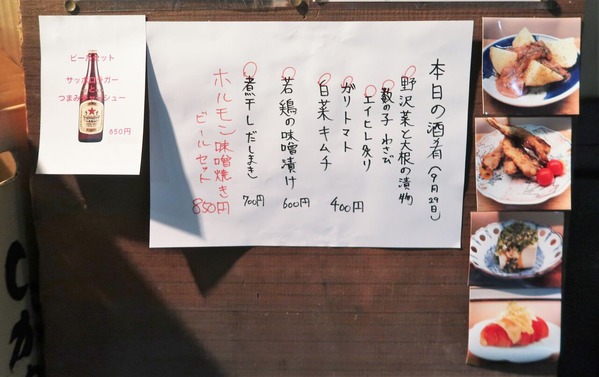 ビールセット
サッポロラガー
850円
本日の酒肴(9月29日)
野沢菜と大根の漬物
数の子わさび
エイヒレ炙り
ガリトマト
白菜キムチ
400円
若鶏の味噌漬け
600円
煮干しだしまき
700円
ホルモン味噌焼き
ビールセット
850円